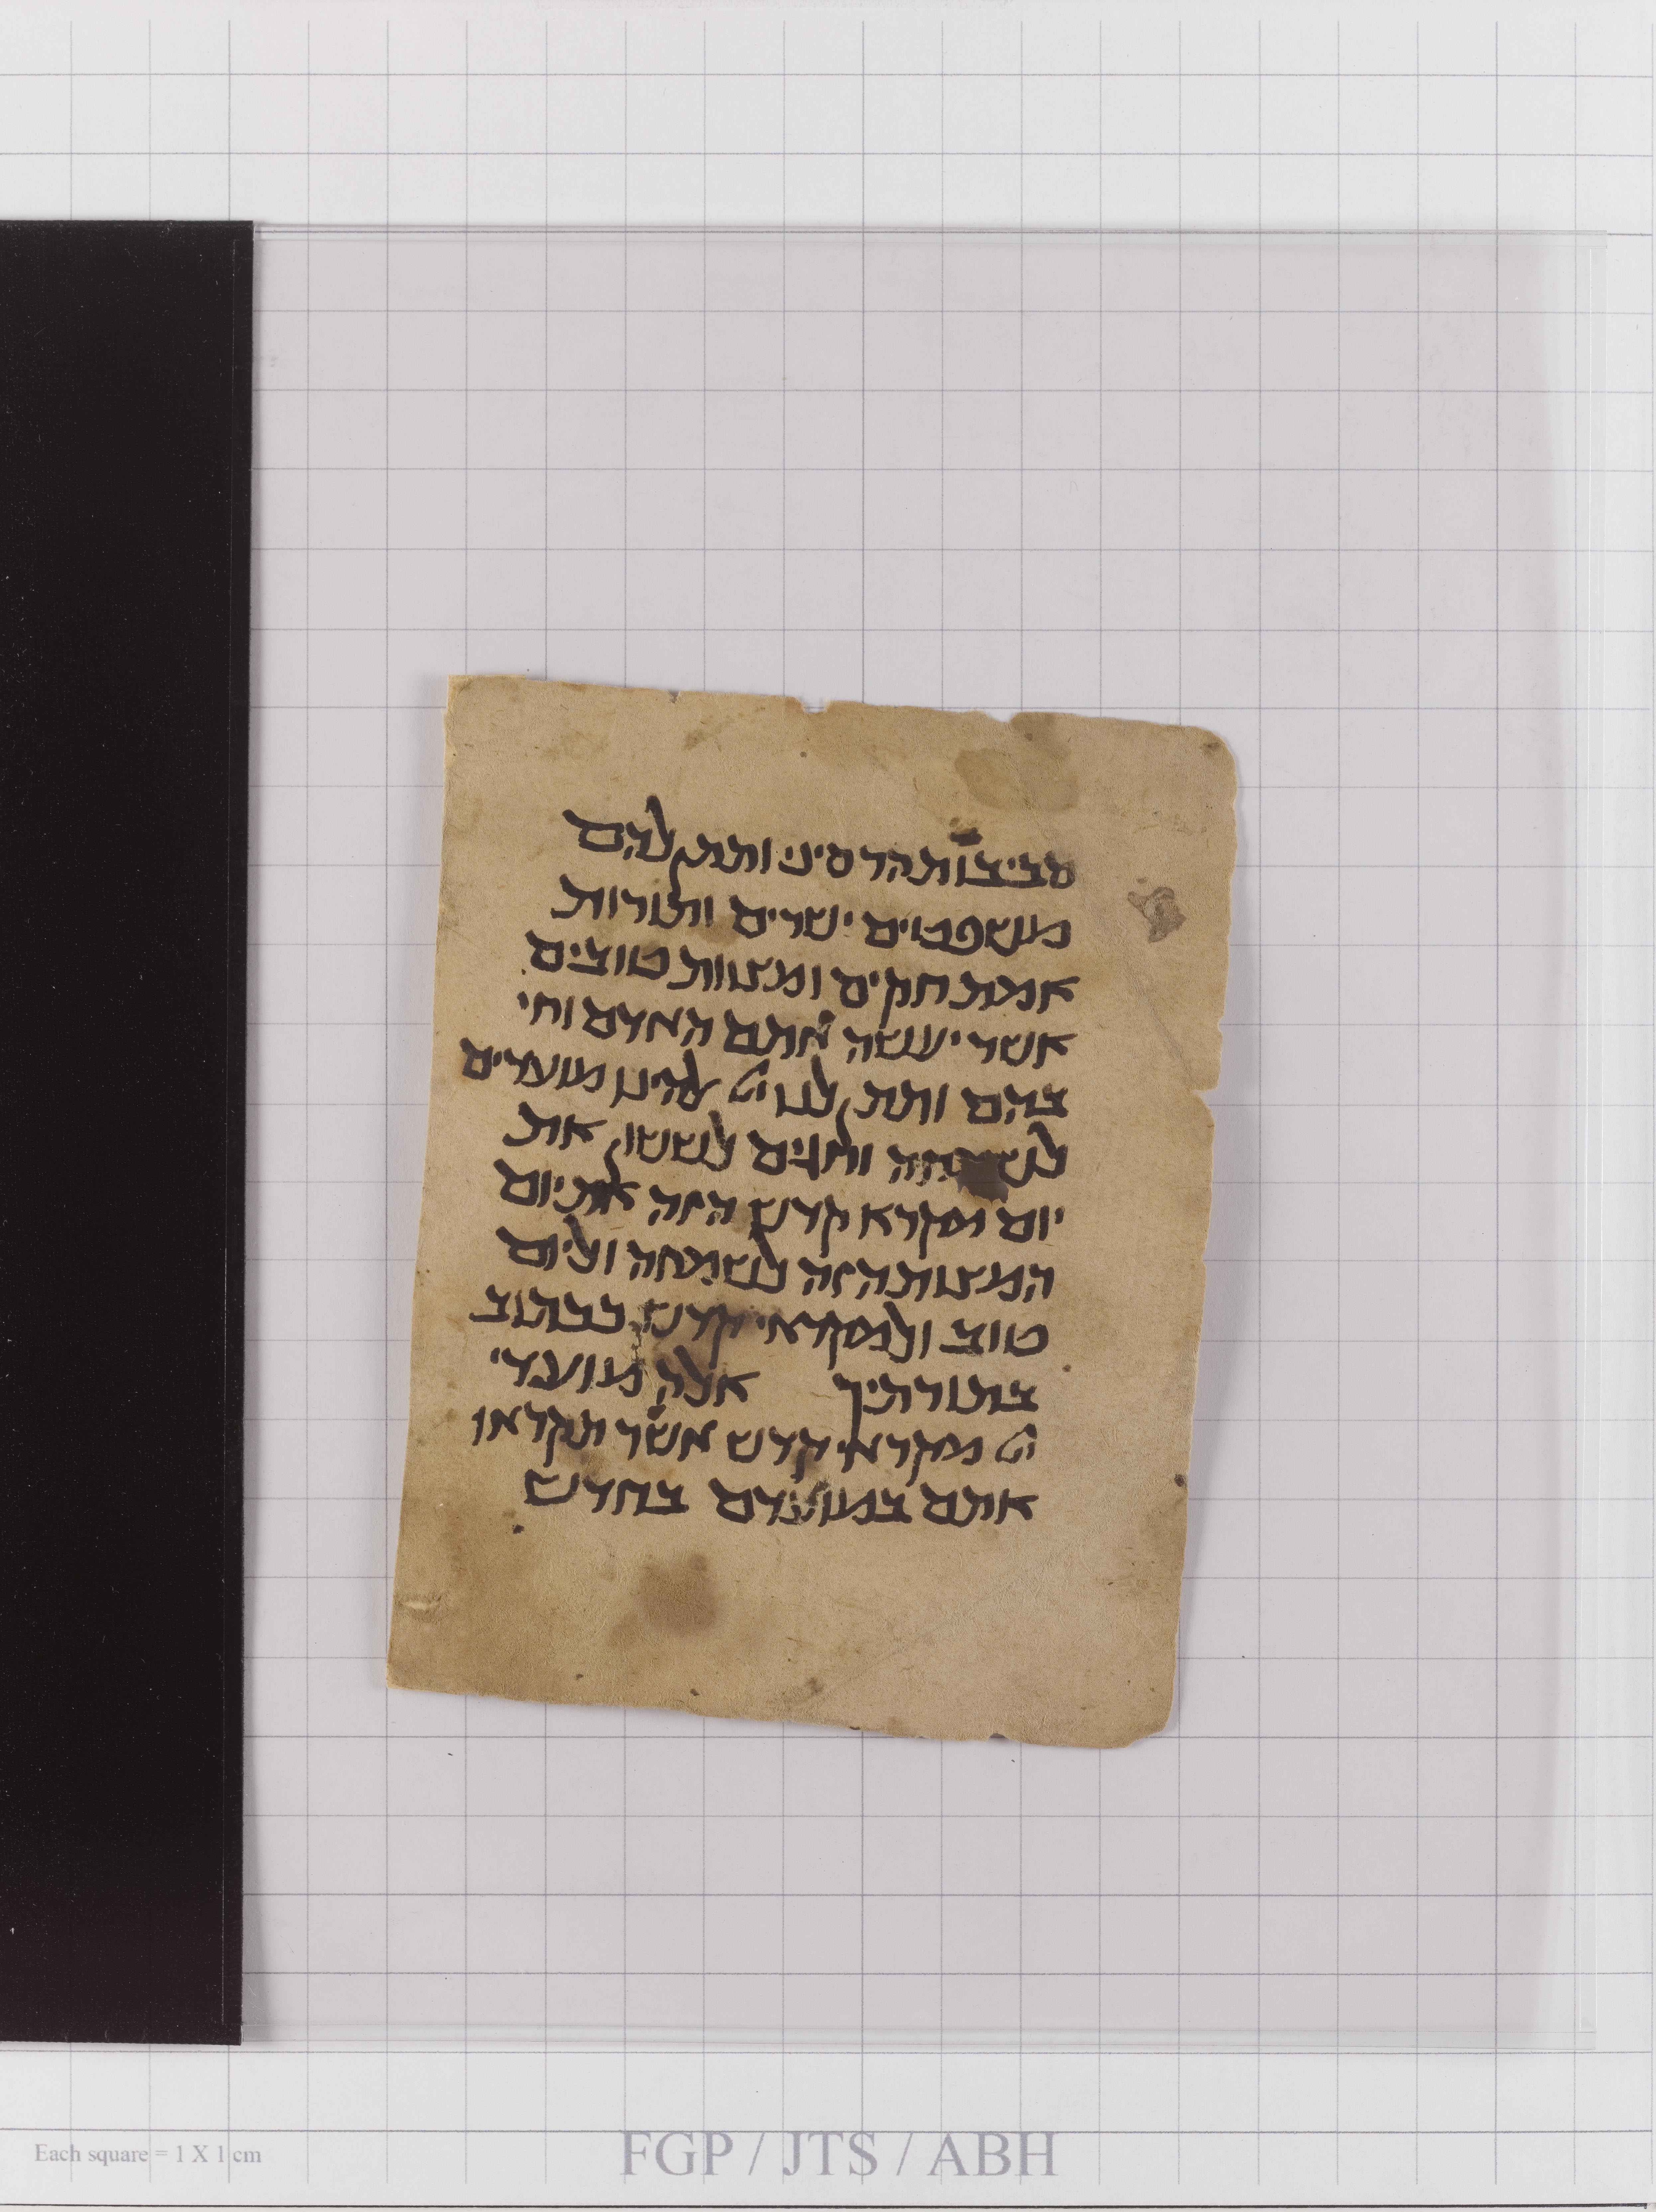 סביבות הר סיני ותתן להם
משפטים ישרים ותורות
אמת חקים ומצוות טובים
אשר יעשה אתם האדם וחי
בהם ותתן לנו יי אלהינו מועדים
לשמחה וחגים לששון את
יום מקרא קדש הזה את יום
המצות הזה לשמחה וליום
טוב ולמקראי קדש ככתוב
בתורתיך אלה מועדי
יי מקראי קדש אשר תקראו
אותם במועדם בחדש
Each square = 1 X 1 cm
FGP / JTS / ABH